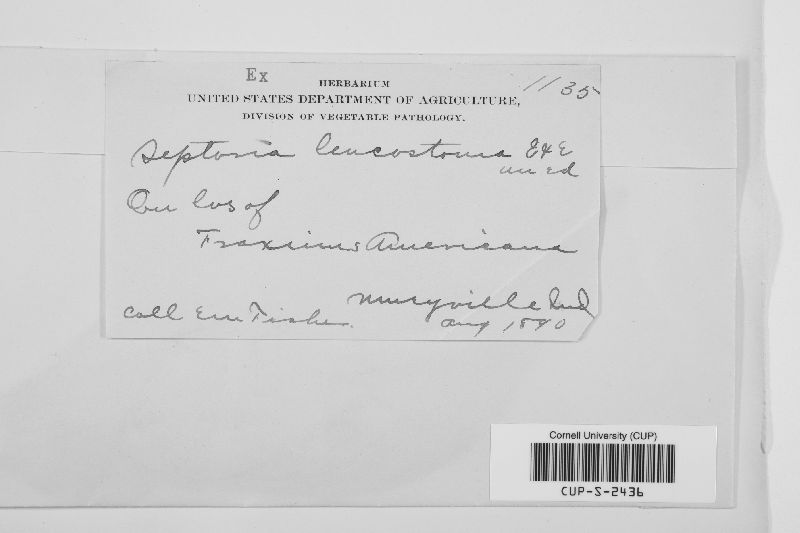 Ex
1135
HERBARIUM
UNITED STATES DEPARTMENT OF AGRICULTURE,
DIVISION OF VEGETABLE PATHOLOGY.
Septoria leucostoma E & E
un ed
On lvs of
Fraxinus Americana
Coll Em Fisher.
Ind
Aug 1890
Cornell University (CUP)
CUP-S-2436